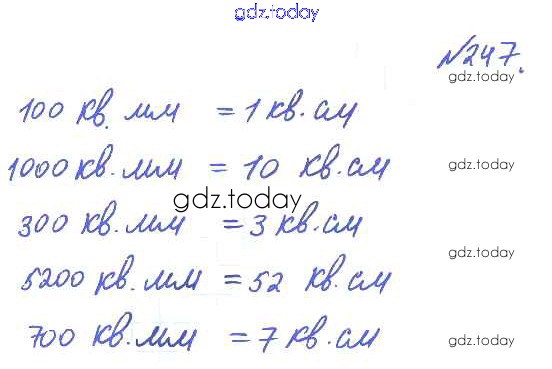 gdz.today
№247.
gdz.today
100 кв. мм = 1 кв. см
1000 кв. мм = 10 кв. см
gdz.today
gdz.today
300 кв. мм = 3 кв. см
gdz.today
5200 кв. мм = 52 кв. см
700 кв. мм = 7 кв. см
gdz.today